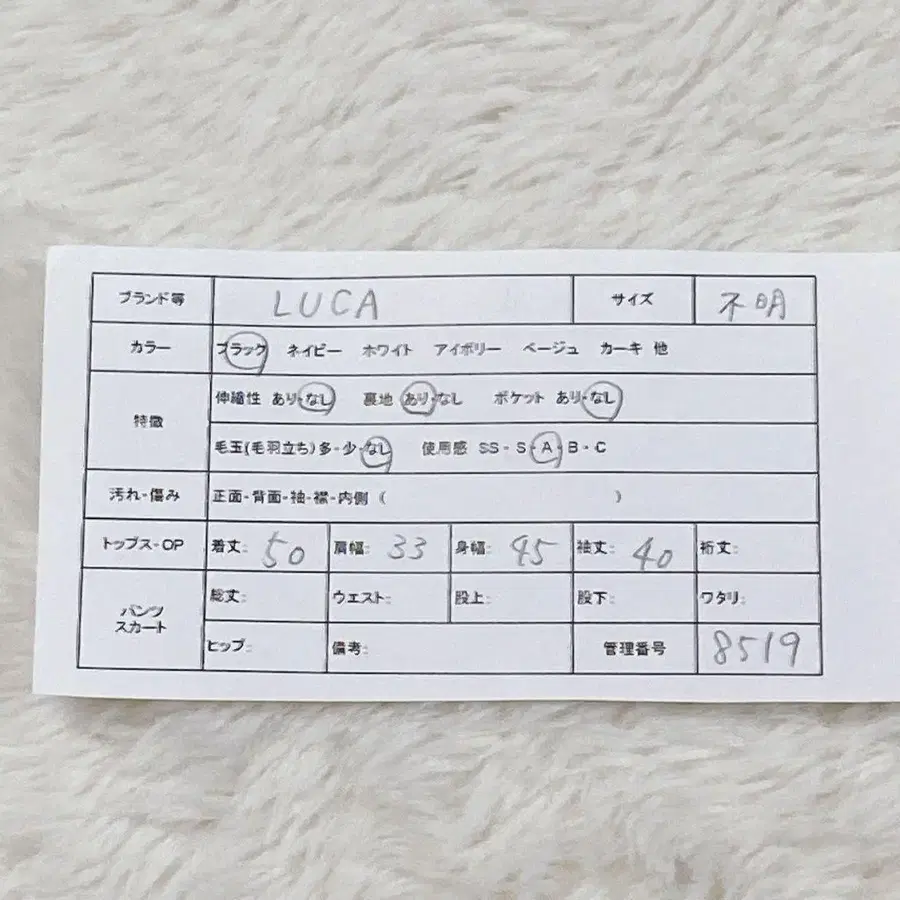 ブランド等 LUCA サイズ 不明
カラー ブラック ネイビー ホワイト アイボリー ベージュ カーキ 他
特徴 伸縮性 あり・なし 裏地 あり・なし ポケット あり・なし
毛玉(毛羽立ち)多・少・なし 使用感 SS・S・A・B・C
汚れ・傷み 正面・背面・袖・襟・内側 ( )
トップス・OP 着丈: 50 肩幅: 33 身幅: 45 袖丈: 40 裄丈:
パンツ スカート 総丈: ウエスト: 股上: 股下: ワタリ:
ヒップ: 備考: 管理番号 8519